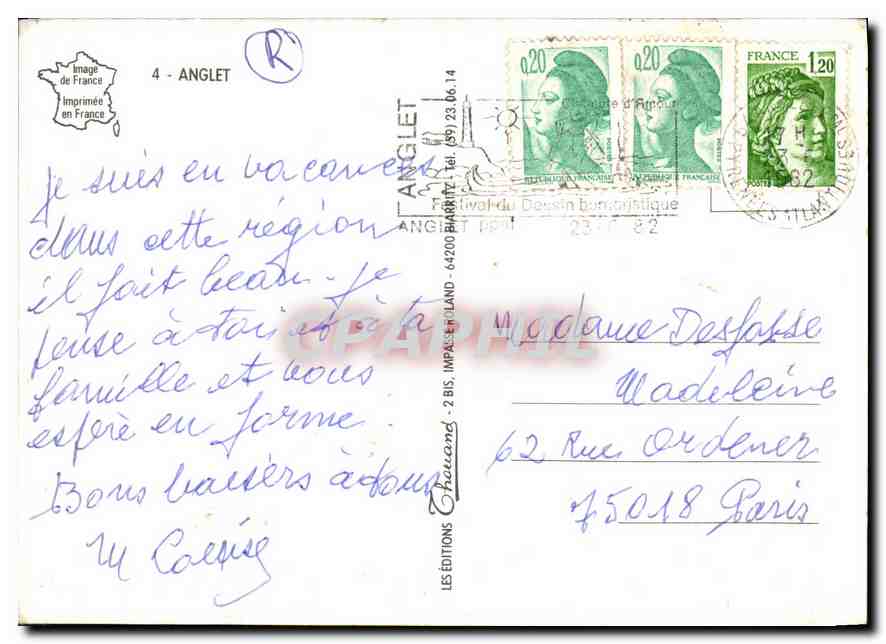 Image
de France
Imprimée
en France
4 - ANGLET
R
je suis en vacances
dans cette région
il fait beau - je
pense à toi et à ta
famille et vous
espère en forme.
Bons baisers à tous
M
LES ÉDITIONS Thouand - 2 BIS, IMPASSE ROLAND - 64200 BIARRITZ - Tél. (59) 23.06.14
0,20
REPUBLIQUE FRANÇAISE
0,20
REPUBLIQUE FRANÇAISE
FRANCE 1,20
POSTES
ANGLET
d'Amour
Festival du Dessin humoristique
ANGLET PPAL 82
17 H
1982
PYRENEES ATLANTIQUES
CPAPHIL
Madame Desfosse
Madeleine
62 Rue Ordener
75018 Paris